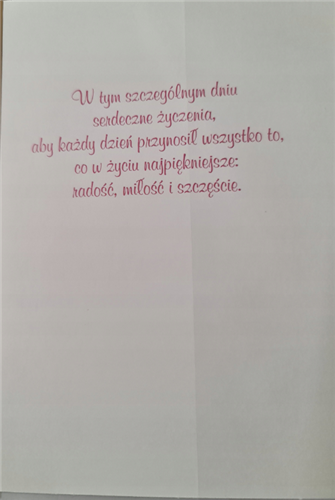 W tym szczególnym dniu
serdeczne życzenia,
aby każdy dzień przynosił wszystko to,
co w życiu najpiękniejsze:
radość, miłość i szczęście.